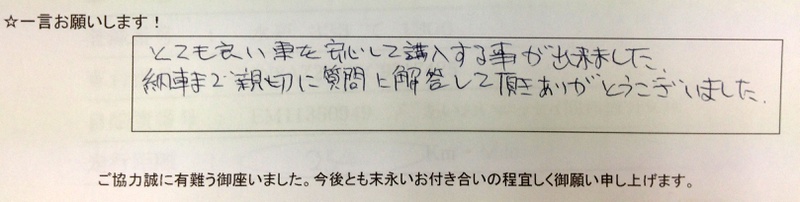 ☆一言お願いします！
とても良い車を安心して購入する事が出来ました。
納車まで親切に質問に解答して頂きありがとうございました。
ご協力誠に有難う御座いました。今後とも末永いお付き合いの程宜しく御願い申し上げます。